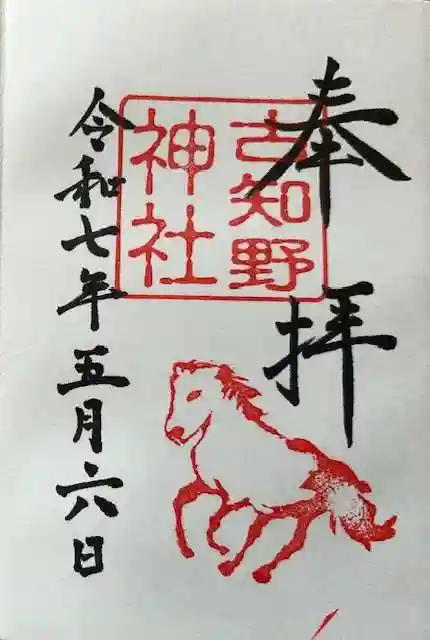 奉拝
古知野
神社
令和七年五月六日